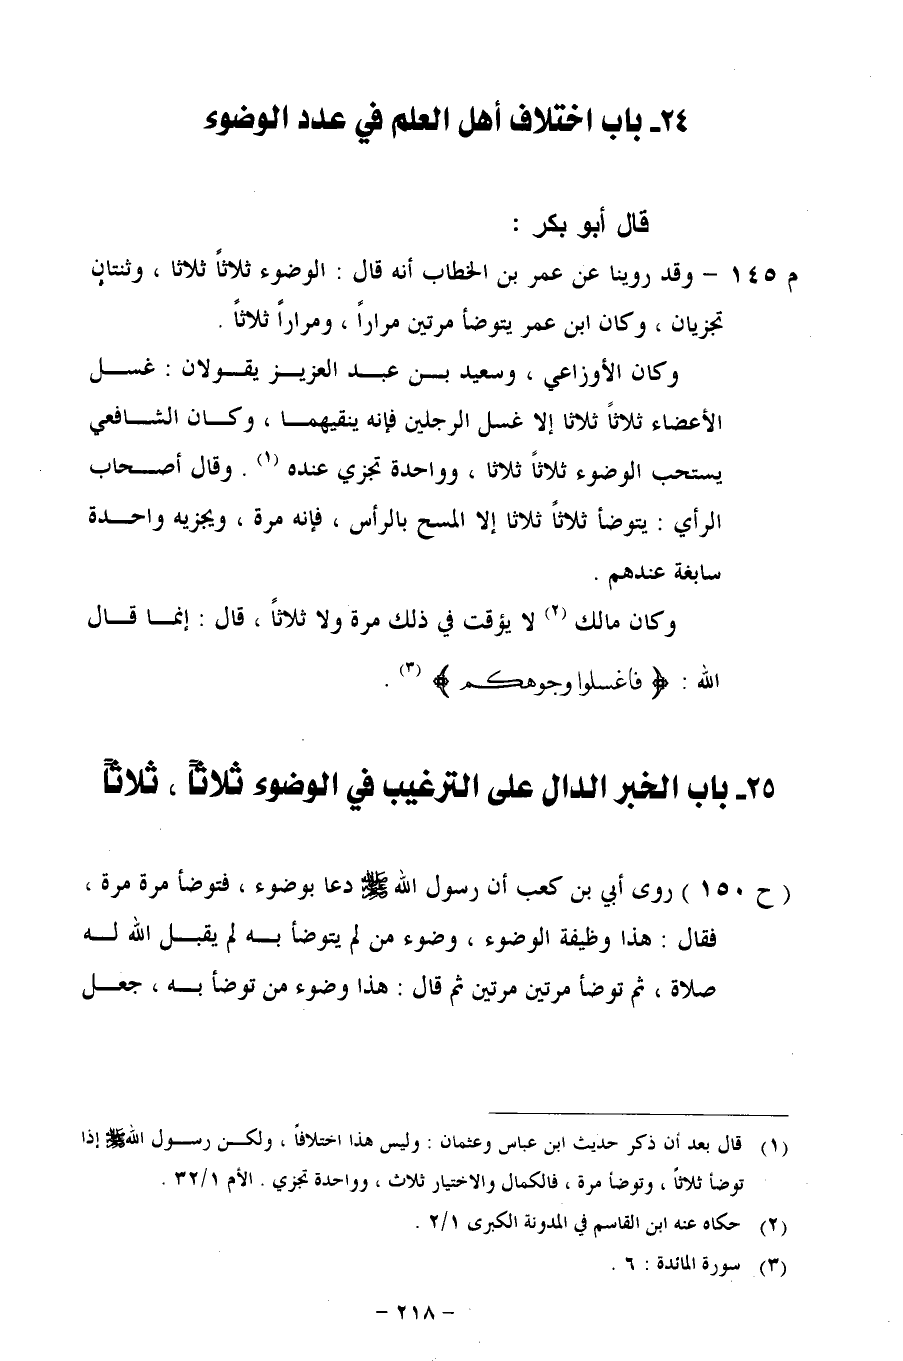 ٢٤ـ باب اختلاف أهل العلم في عدد الوضوء
قال أبو بكر :
م ١٤٥ – وقد روينا عن عمر بن الخطاب أنه قال : الوضوء ثلاثاً ثلاثا ، وثنتان
تجزيان ، وكان ابن عمر يتوضأ مرتين مراراً ، ومراراً ثلاثاً .
وكان الأوزاعي ، وسعيد بن عبد العزيز يقولان : غسل
الأعضاء ثلاثاً ثلاثا إلا غسل الرجلين فإنه ينقيهما ، وكان الشافعي
يستحب الوضوء ثلاثاً ثلاثا ، وواحدة تجزي عنده (١) . وقال أصحاب
الرأي : يتوضأ ثلاثاً ثلاثا إلا المسح بالرأس ، فإنه مرة ، ويجزيه واحدة
سابغة عندهم .
وكان مالك (٢) لا يؤقت في ذلك مرة ولا ثلاثاً ، قال : إنما قال
الله : ﴿ فاغسلوا وجوهكم ﴾ (٣) .
٢٥ـ باب الخبر الدال على الترغيب في الوضوء ثلاثاً ، ثلاثاً
( ح ١٥٠ ) روى أبي بن كعب أن رسول الله ﷺ دعا بوضوء ، فتوضأ مرة مرة ،
فقال : هذا وظيفة الوضوء ، وضوء من لم يتوضأ به لم يقبل الله له
صلاة ، ثم توضأ مرتين مرتين ثم قال : هذا وضوء من توضأ به ، جعل
(١) قال بعد أن ذكر حديث ابن عباس وعثمان : وليس هذا اختلافاً ، ولكن رسول الله ﷺ إذا
توضأ ثلاثاً ، وتوضأ مرة ، فالكمال والاختيار ثلاث ، وواحدة تجزي . الأم ٣٢/١ .
(٢) حكاه عنه ابن القاسم في المدونة الكبرى ٢/١ .
(٣) سورة المائدة : ٦ .
– ٢١٨ –